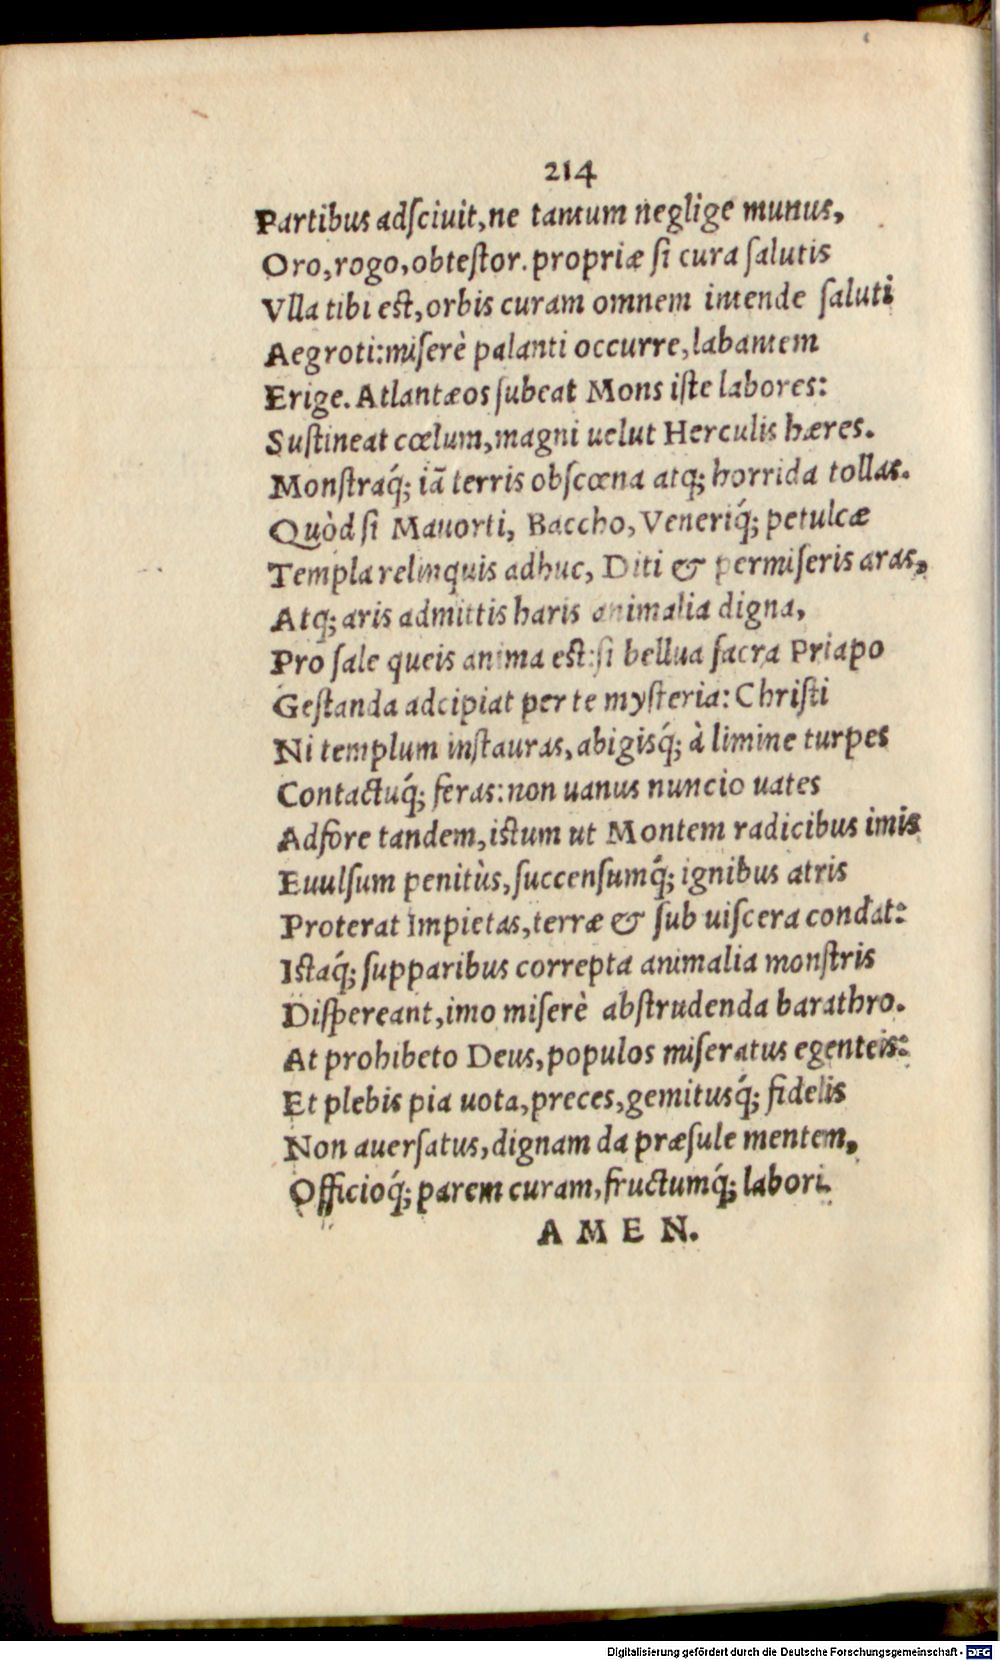 214
Partibus adſciuit, ne tantum neglige munus,
Oro, rogo, obteſtor. propriæ ſi cura ſalutis
Vlla tibi eſt, orbis curam omnem intende ſaluti
Aegroti: miſerè palanti occurre, labantem
Erige. Atlantæos ſubeat Mons iſte labores:
Suſtineat cœlum, magni uelut Herculis hæres.
Monſtraq́; iã terris obſcœna atq; horrida tollas.
Quòd ſi Mauorti, Baccho, Veneriq́; petulcæ
Templa relinquis adhuc, Diti & permiſeris aras,
Atq; aris admittis haris animalia digna,
Pro ſale queis anima eſt: ſi bellua ſacra Priapo
Geſtanda adcipiat per te myſteria: Chriſti
Ni templum inſtauras, abigisq́; à limine turpes
Contactuq́; feras: non uanus nuncio uates
Adfore tandem, iſtum ut Montem radicibus imis
Euulſum penitùs, ſuccenſumq́; ignibus atris
Proterat Impietas, terræ & ſub uiſcera condat:
Iſtaq́; ſupparibus correpta animalia monſtris
Diſpereant, imo miſerè abſtrudenda barathro.
At prohibeto Deus, populos miſeratus egenteis:
Et plebis pia uota, preces, gemitusq́; fidelis
Non auerſatus, dignam da præſule mentem,
Officioq́; parem curam, fructumq́; labori.
A M E N.
Digitalisierung gefördert durch die Deutsche Forschungsgemeinschaft - DFG